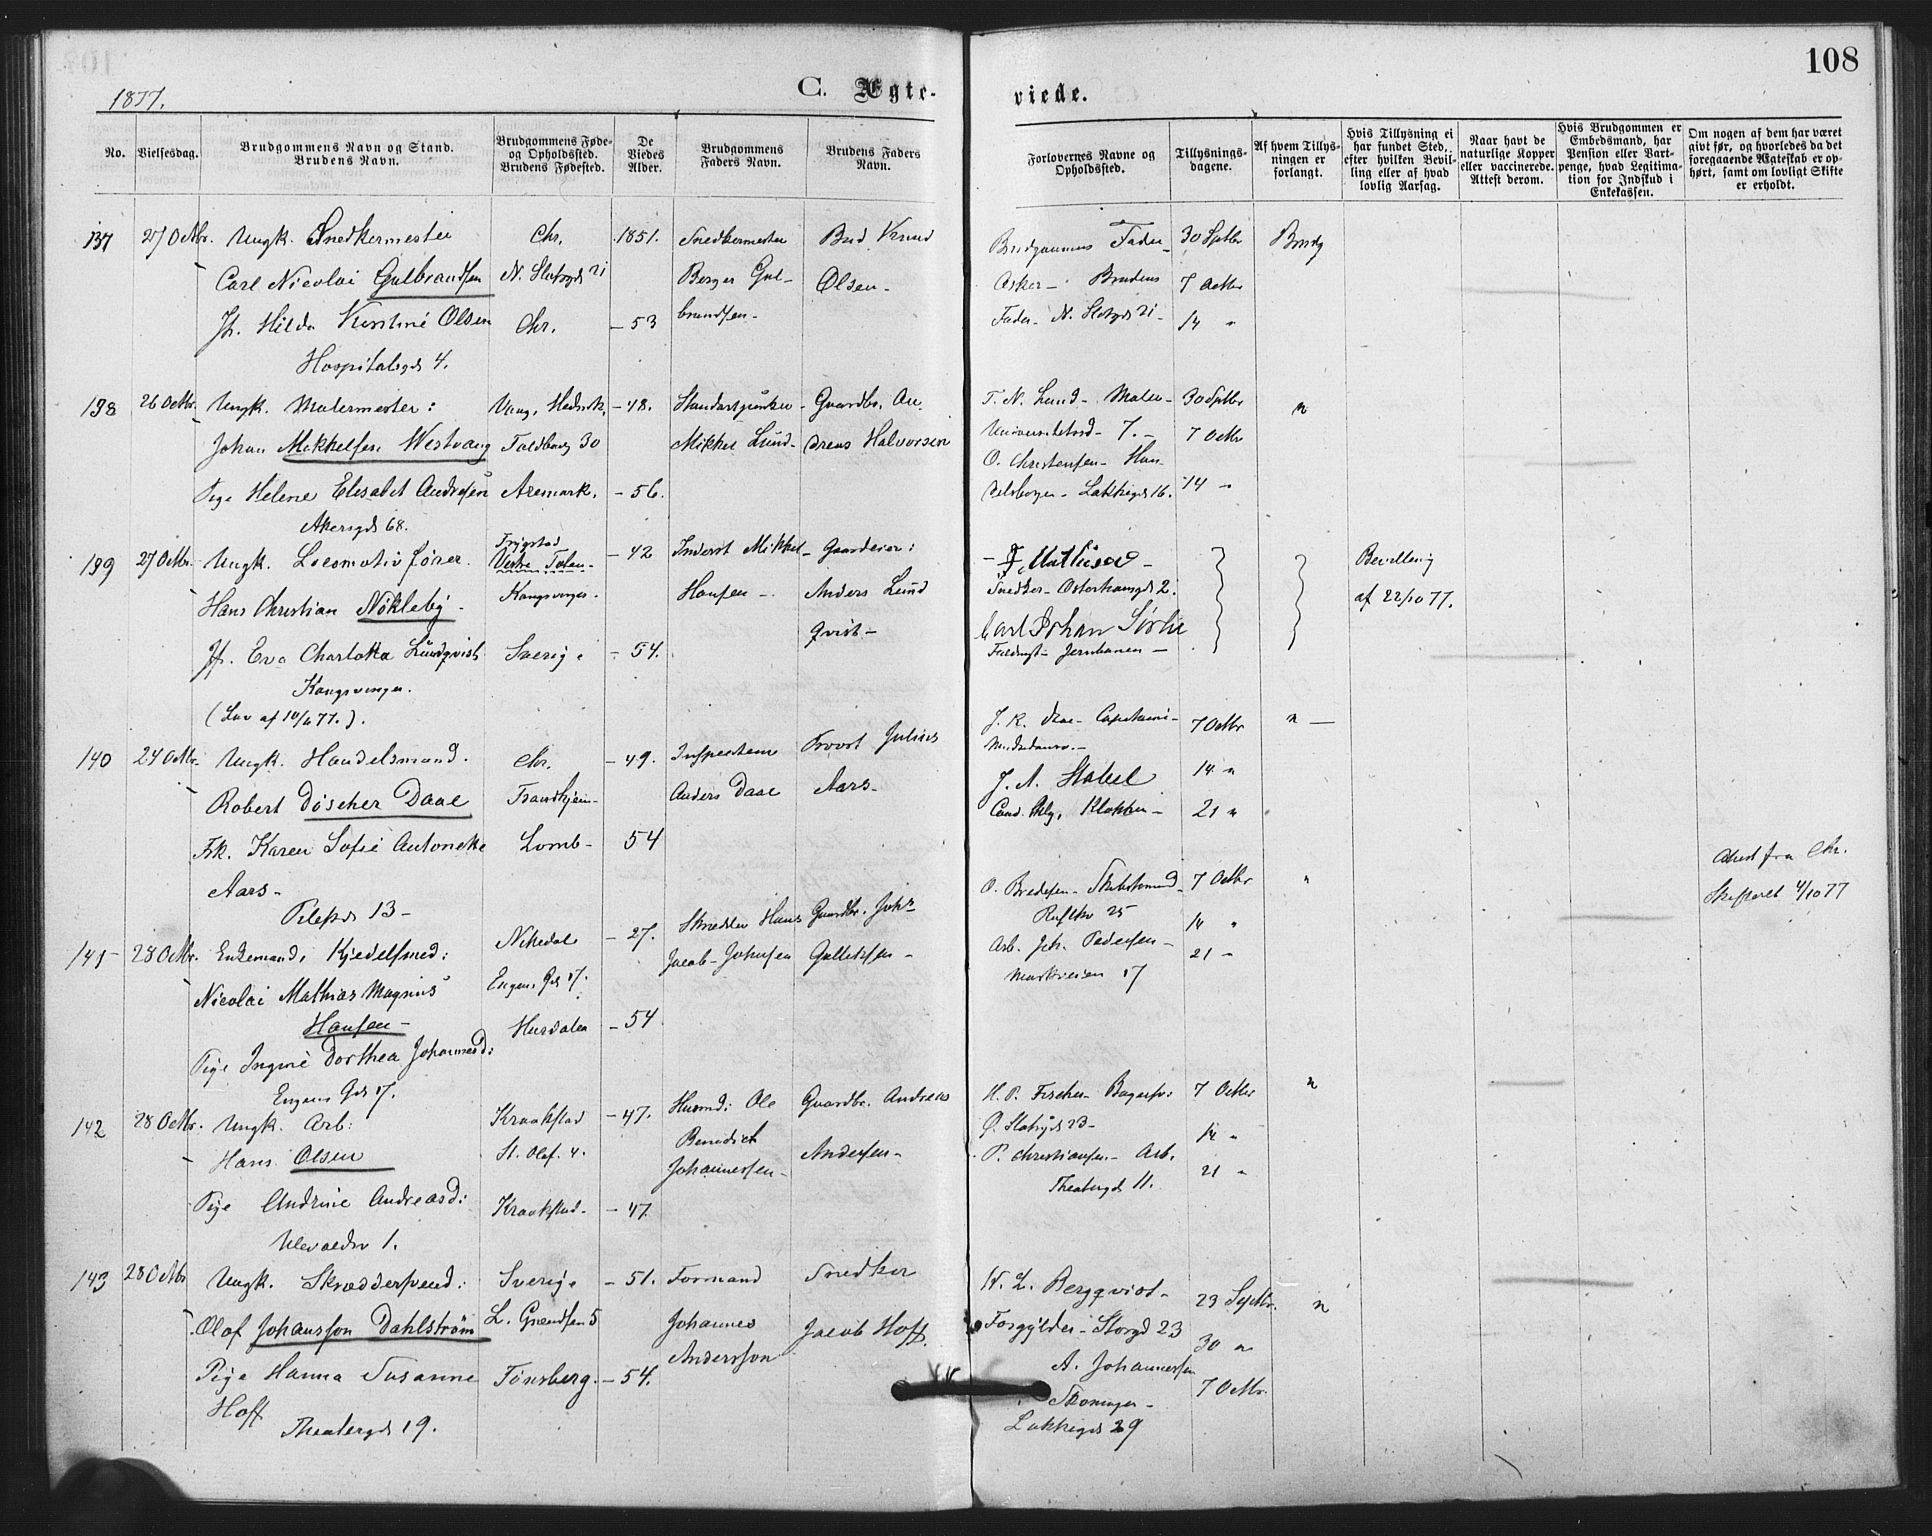 108
1877.
C. Ægte-
viede.
No.
Vielsesdag.
Brudgommens Navn og Stand.
Brudens Navn.
Brudgommens Føde-
og Opholdssted.
Brudens Fødested.
De
Viedes
Alder.
Brudgommens
Faders Navn.
Brudens Faders
Navn.
Forlovernes Navne og
Opholdssted.
Tillysnings-
dagene.
Af hvem Tillys-
ningen er
forlangt.
Hvis Tillysning ei
har fundet Sted,
efter hvilken Bevil-
ling eller af hvad
lovlig Aarsag.
Naar havt de
naturlige Kopper
eller vaccinerede.
Attest derom.
Hvis Brudgommen er
Embedsmand, har
Pension eller Vart-
penge, hvad Legitima-
tion for Indskud i
Enkekassen.
Om nogen af dem har været
givt før, og hvorledes da det
foregaaende Ægteskab er op-
hørt, samt om lovligt Skifte
er erholdt.
137
27 Octbr.
Ungk. Snedkermester
Carl Nicolai Gulbrandsen
Jfr. Hilda Kristine Olsen
Hospitalsgd 4.
Chr.
N. Slotsgd 21
Chr.
1851.
- 53
Snedkermester
Berger Gul-
brandsen-
Bud Knud
Olsen-
Brudgommens Fader-
Asker- Brudens
Fader- N. Slotsgd 21-
30 Septbr
7 Octbr
14 "
Brudg
138
26 Octbr.
Ungk. Malermester:
Johan Mikkelsen Westvang
Pige Helene Elisabet Andresen
Akersgd 68.
Vang, Hedmk,
Toldbodg 30
Aremark.
- 48.
- 56.
Mikkel Lund-
Gaardbr. An-
dreas Halvorsen
T. N. Lund- Maler-
Universitetsgd- 7.-
O. Christensen- Han-
delsborger- Lakkegd 16.
30 Septbr
7 Octbr
14 "
"
139
27 Octbr.
Ungk. Locomotivfører.
Hans Christian Nøkleby-
Jfr. Eva Charlotta Lundqvist
Kongsvinger.
(Lov af 10/6 77.).
Trygstad
Vestre Toten-
Kongsvinger.
Sverige
- 42
- 54.
Inderst Mikkel
Hansen-
Gaardeier:
Anders Lund
qvist-
Snedker- Osterhausgd 2.
Carl Johan Sørlie
Jernbanen-
Bevilling
af 22/10 77.
140
24 Octbr.
Ungk. Handelsmand.
Robert Döscher Daae
Frk. Karen Sofie Antonette
Aars-
Pilestd 13-
Chr.
Trondhjem-
Lomb-
- 49.
54
Anders Daae
Provst Julius
Aars-
J. A. Stabel
7 Octbr
14 "
21 "
" -
141
28 Octbr.
Enkemand, Kjedelsmed:
Nicolai Mathias Magnus
Hansen-
Pige Ingine Dorthea Johannesd:
Engens Gd 17.
Nitedal
Engens Gd 17.
Hurdalen
- 27.
- 54
Skrædder Hans
Jacob- Johnsen
Gaardbr. Johs
Gulleksen-
Arb. Joh. Pedersen-
Markveien 17
7 Octbr
14 "
21 "
"
Attest fra Chr.
Skifteret 4/10 77
142
28 Octbr.
Ungk. Arb:
Hans Olsen
Pige Andrine Andreasd:
Ulevoldsv 1.
Kraakstad
St. Olaf. 4.
Kraakstad-
- 47.
- 47.
Husmd: Ole
Benedict
Johannessen-
Gaardbr. Andreas
Andersen-
H. P. Fischer- Bagersv:
Ø. Slotsgd 23-
P. Christiansen- Arb.
Theatergd 11.
7 Octbr
14 "
21 "
"
143
28 Octbr
Ungk. Skrædersvend:
Olaf Johansson Dahlstrøm
Pige Hanna Susanne
Hoff
Theatergd 19.
Sverige
L. Grændsen 5
Tønsberg.
- 51.
- 54.
Formand
Johannes
Andersson
Snedker
Jacob Hoff.
W. L. Bergqvist-
Forgylder- Storgd 23
A. Johannessen
Skomager-
Lakkegd 29
23 Septbr.
30 "
7 Octbr.
"